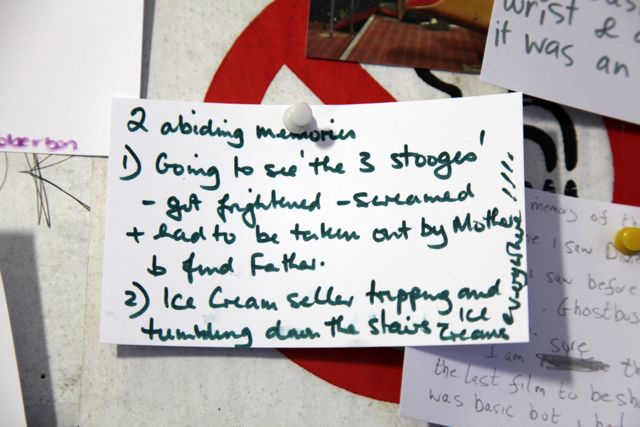 2 abiding memories
1) Going to see 'the 3 stooges'
- got frightened - screamed
+ had to be taken out by Mother
to find Father.
2) Ice Cream seller tripping and
tumbling down the stairs Ice Creams
everywhere !!!!
wrist &
it was an
memory of the
I saw
saw before
Ghostbus
I am sure th
the last film to be sh
was basic but